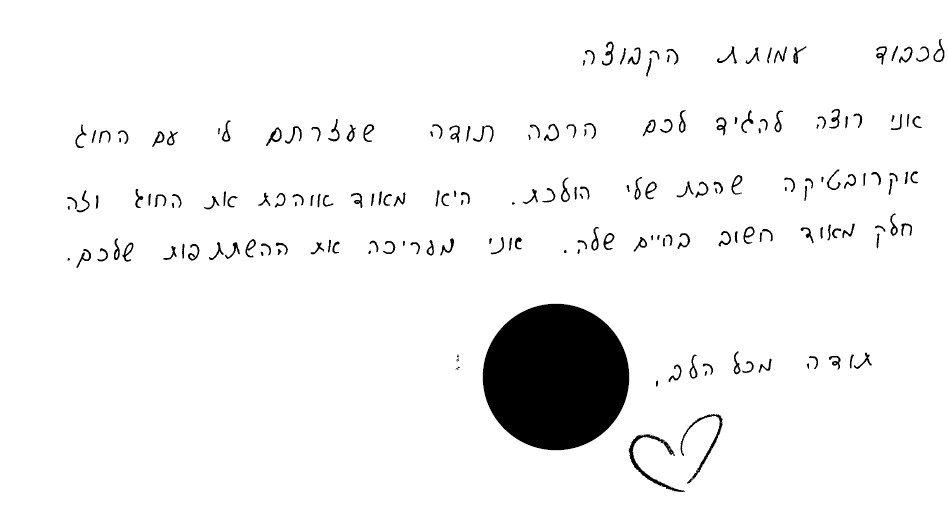 לכבוד עמותת הקבוצה
אני רוצה להגיד לכם הרבה תודה שעזרתם לי עם החוג
אקרובטיקה שהבת שלי הולכת. היא מאוד אוהבת את החוג וזה
חלק מאוד חשוב בחיים שלה. אני מעריכה את ההשתתפות שלכם.
תודה מכל הלב,